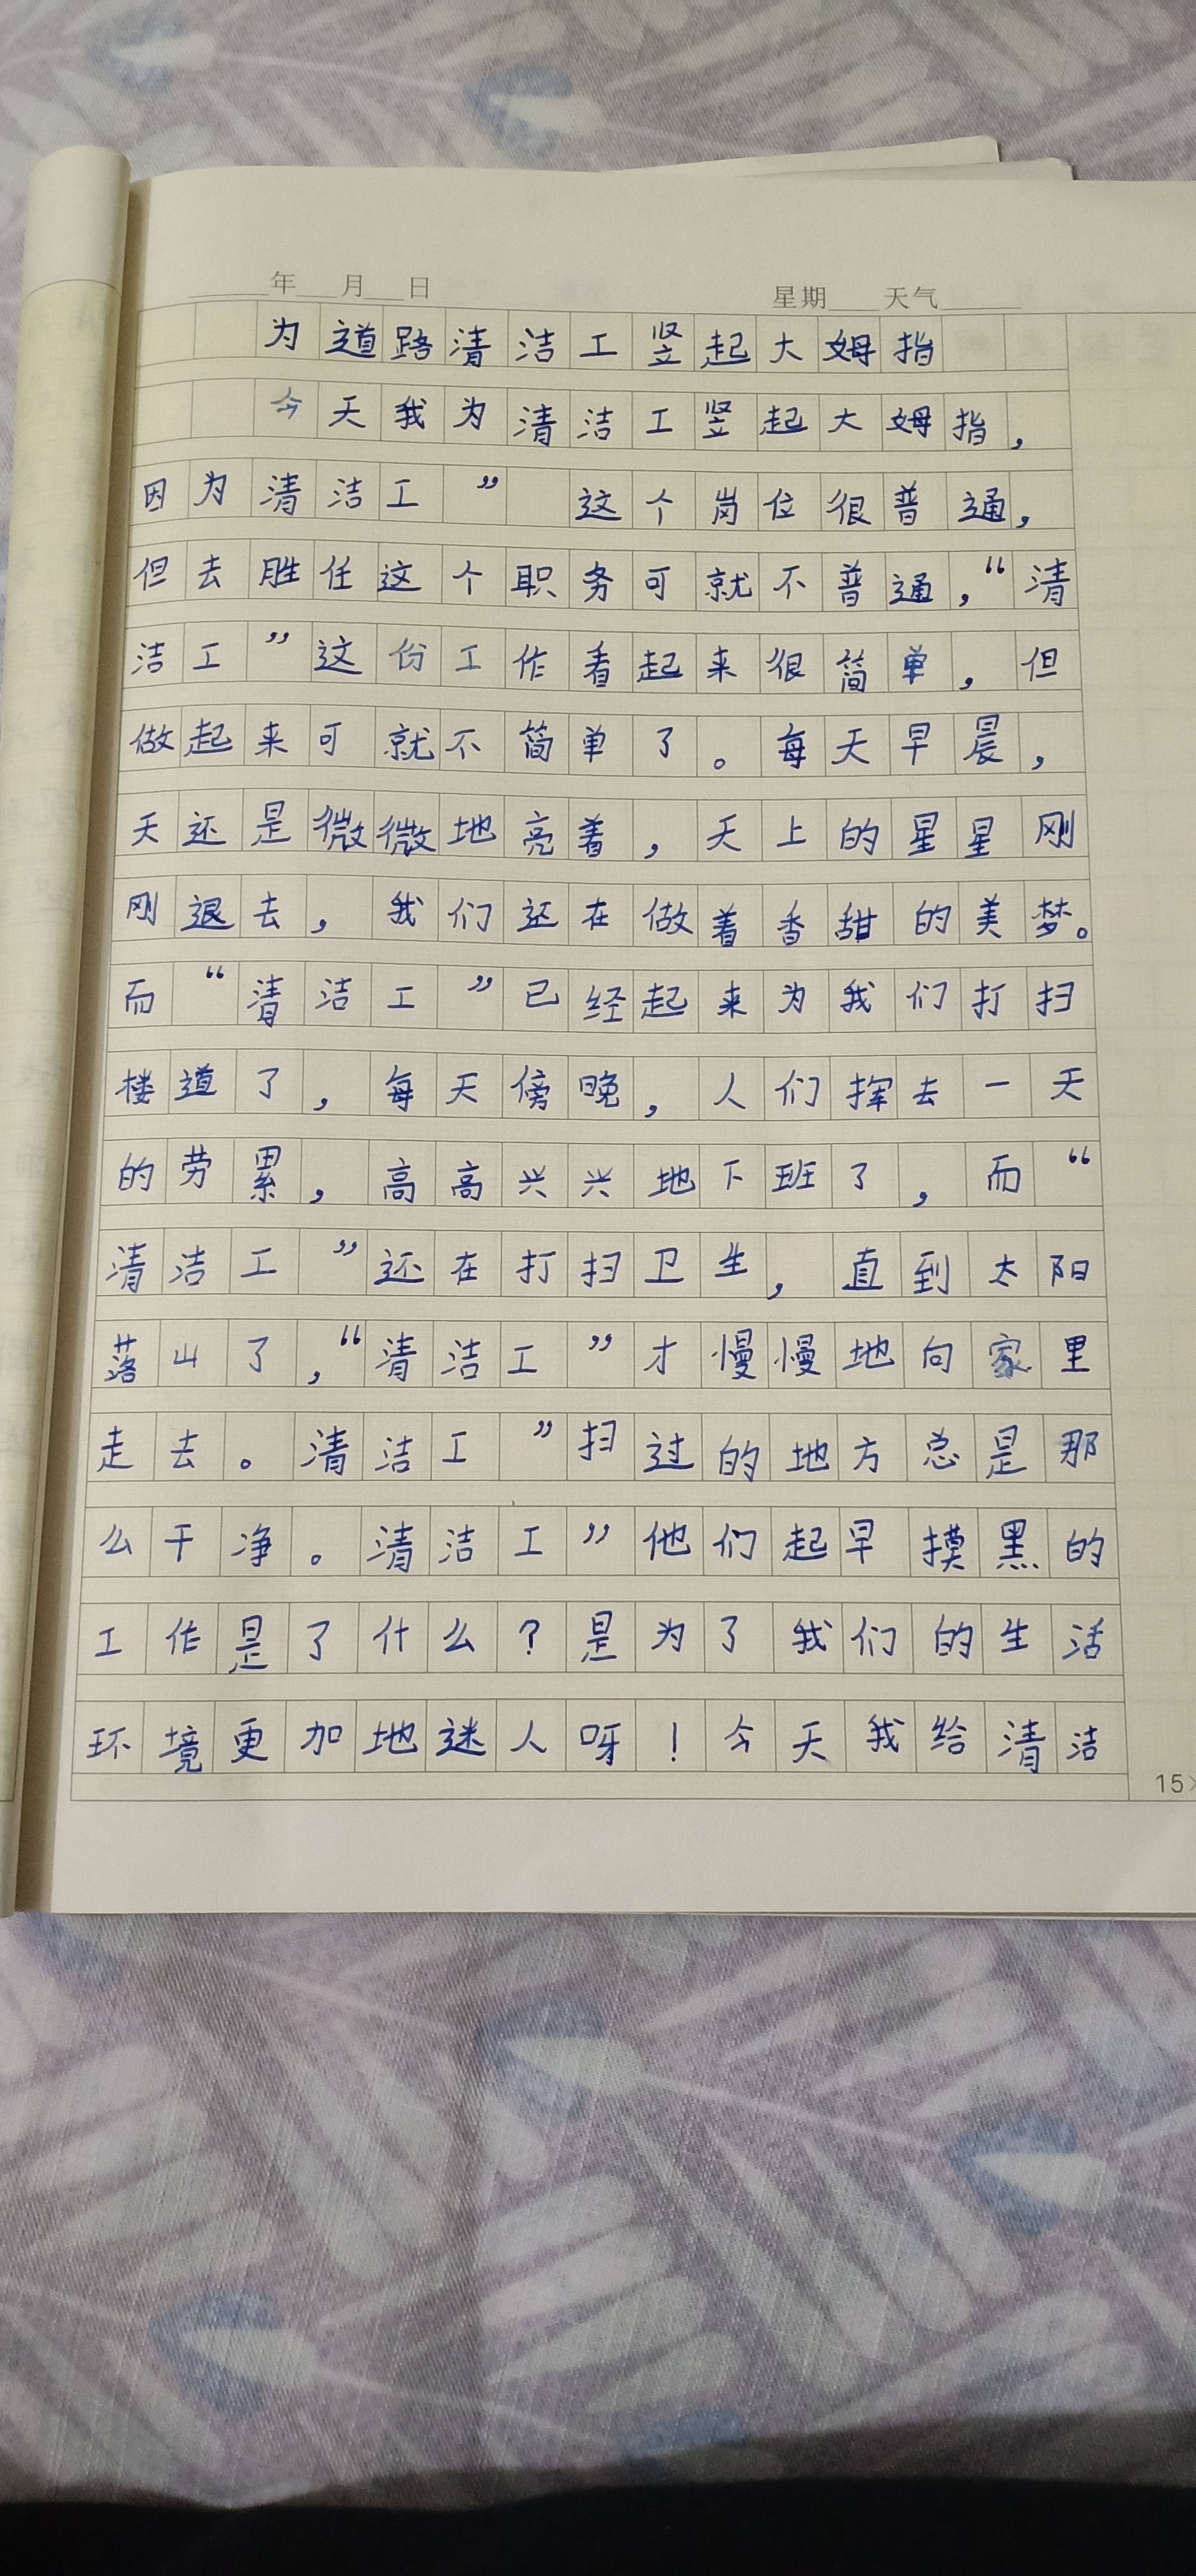 年 月 日 星期 天气
为道路清洁工竖起大姆指
今天我为清洁工竖起大姆指，
因为清洁工” 这个岗位很普通，
但去胜任这个职务可就不普通，“清
洁工”这份工作看起来很简单，但
做起来可就不简单了。每天早晨，
天还是微微地亮着，天上的星星刚
刚退去，我们还在做着香甜的美梦。
而“清洁工”已经起来为我们打扫
楼道了，每天傍晚，人们挥去一天
的劳累，高高兴兴地下班了，而“
清洁工”还在打扫卫生，直到太阳
落山了，“清洁工”才慢慢地向家里
走去。清洁工”扫过的地方总是那
么干净。清洁工”他们起早摸黑的
工作是了什么？是为了我们的生活
环境更加地迷人呀！今天我给清洁
15